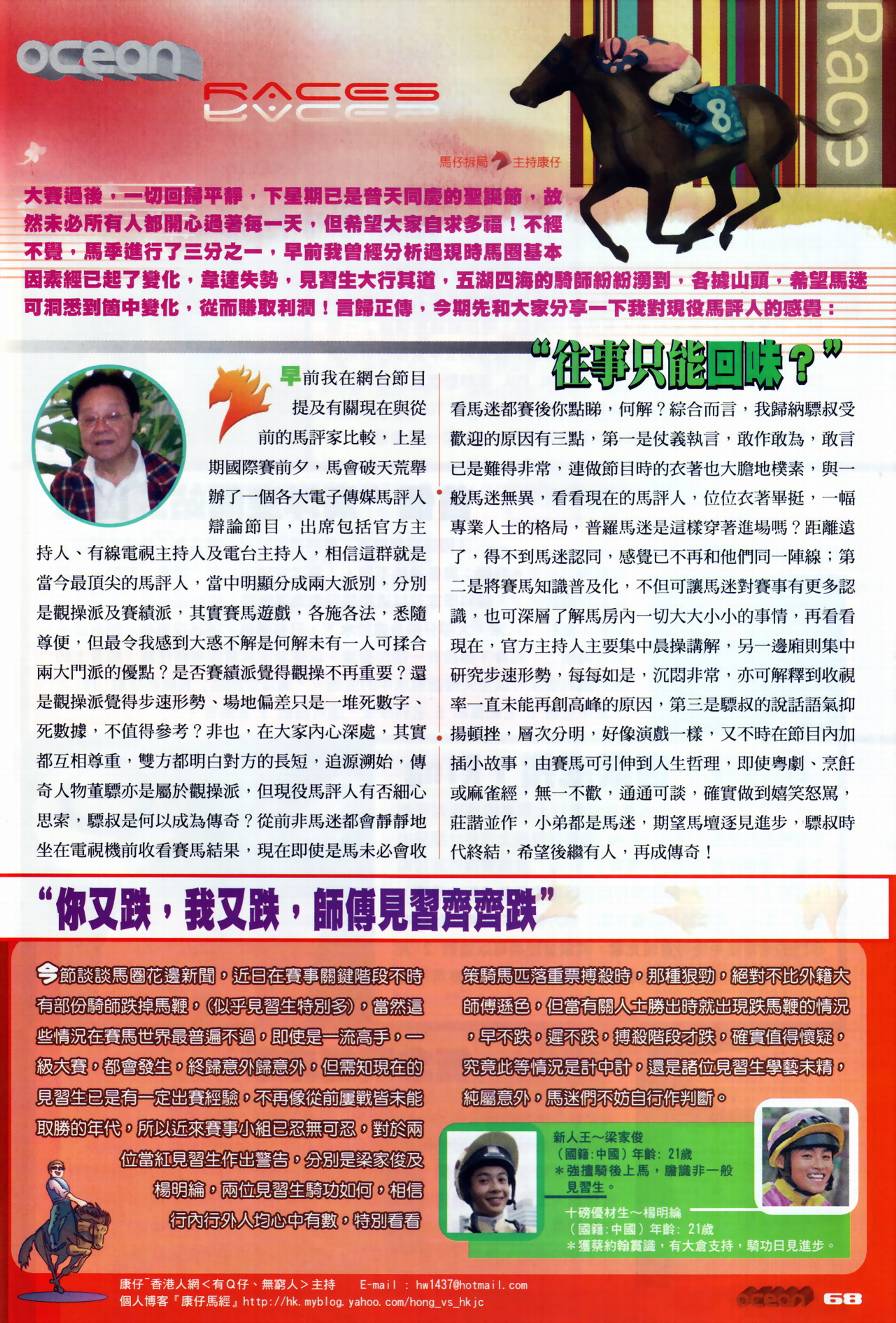 ocean
RACES
Race
8
馬仔拆局 主持康仔
大賽過後，一切回歸平靜，下星期已是普天同慶的聖誕節，故
然未必所有人都開心過著每一天，但希望大家自求多福！不經
不覺，馬季進行了三分之一，早前我曾經分析過現時馬圈基本
因素經已起了變化，韋達失勢，見習生大行其道，五湖四海的騎師紛紛湧到，各據山頭，希望馬迷
可洞悉到箇中變化，從而賺取利潤！言歸正傳，今期先和大家分享一下我對現役馬評人的感覺：
“往事只能回味？”
早前我在網台節目
提及有關現在與從
前的馬評家比較，上星
期國際賽前夕，馬會破天荒舉
辦了一個各大電子傳媒馬評人
辯論節目，出席包括官方主
持人、有線電視主持人及電台主持人，相信這群就是
當今最頂尖的馬評人，當中明顯分成兩大派別，分別
是觀操派及賽績派，其實賽馬遊戲，各施各法，悉隨
尊便，但最令我感到大惑不解是何解未有一人可揉合
兩大門派的優點？是否賽績派覺得觀操不再重要？還
是觀操派覺得步速形勢、場地偏差只是一堆死數字、
死數據，不值得參考？非也，在大家內心深處，其實
都互相尊重，雙方都明白對方的長短，追源溯始，傳
奇人物董驃亦是屬於觀操派，但現役馬評人有否細心
思索，驃叔是何以成為傳奇？從前非馬迷都會靜靜地
坐在電視機前收看賽馬結果，現在即使是馬未必會收
看馬迷都賽後你點睇，何解？綜合而言，我歸納驃叔受
歡迎的原因有三點，第一是仗義執言，敢作敢為，敢言
已是難得非常，連做節目時的衣著也大膽地樸素，與一
般馬迷無異，看看現在的馬評人，位位衣著畢挺，一幅
專業人士的格局，普羅馬迷是這樣穿著進場嗎？距離遠
了，得不到馬迷認同，感覺已不再和他們同一陣線；第
二是將賽馬知識普及化，不但可讓馬迷對賽事有更多認
識，也可深層了解馬房內一切大大小小的事情，再看看
現在，官方主持人主要集中晨操講解，另一邊廂則集中
研究步速形勢，每每如是，沉悶非常，亦可解釋到收視
率一直未能再創高峰的原因，第三是驃叔的說話語氣抑
揚頓挫，層次分明，好像演戲一樣，又不時在節目內加
插小故事，由賽馬可引伸到人生哲理，即使粵劇、烹飪
或麻雀經，無一不歡，通通可談，確實做到嬉笑怒罵，
莊諧並作，小弟都是馬迷，期望馬壇逐見進步，驃叔時
代終結，希望後繼有人，再成傳奇！
“你又跌，我又跌，師傅見習齊齊跌”
今節談談馬圈花邊新聞，近日在賽事關鍵階段不時
有部份騎師跌掉馬鞭，（似乎見習生特別多），當然這
些情況在賽馬世界最普遍不過，即使是一流高手，一
級大賽，都會發生，終歸意外歸意外，但需知現在的
見習生已是有一定出賽經驗，不再像從前屢戰皆未能
取勝的年代，所以近來賽事小組已忍無可忍，對於兩
位當紅見習生作出警告，分別是梁家俊及
楊明綸，兩位見習生騎功如何，相信
行內行外人均心中有數，特別看看
策騎馬匹落重票搏殺時，那種狠勁，絕對不比外籍大
師傅遜色，但當有關人士勝出時就出現跌馬鞭的情況
，早不跌，遲不跌，搏殺階段才跌，確實值得懷疑，
究竟此等情況是計中計，還是諸位見習生學藝未精，
純屬意外，馬迷們不妨自行作判斷。
新人王～梁家俊
（國籍:中國）年齡: 21歲
＊強擅騎後上馬，膽識非一般
見習生。
十磅優材生～楊明綸
（國籍:中國）年齡: 21歲
＊獲蔡約翰賞識，有大倉支持，騎功日見進步。
康仔~香港人網＜有Ｑ仔、無窮人＞主持 E-mail : hw1437@hotmail.com
個人博客『康仔馬經』http://hk.myblog.yahoo.com/hong_vs_hkjc
ocean 68